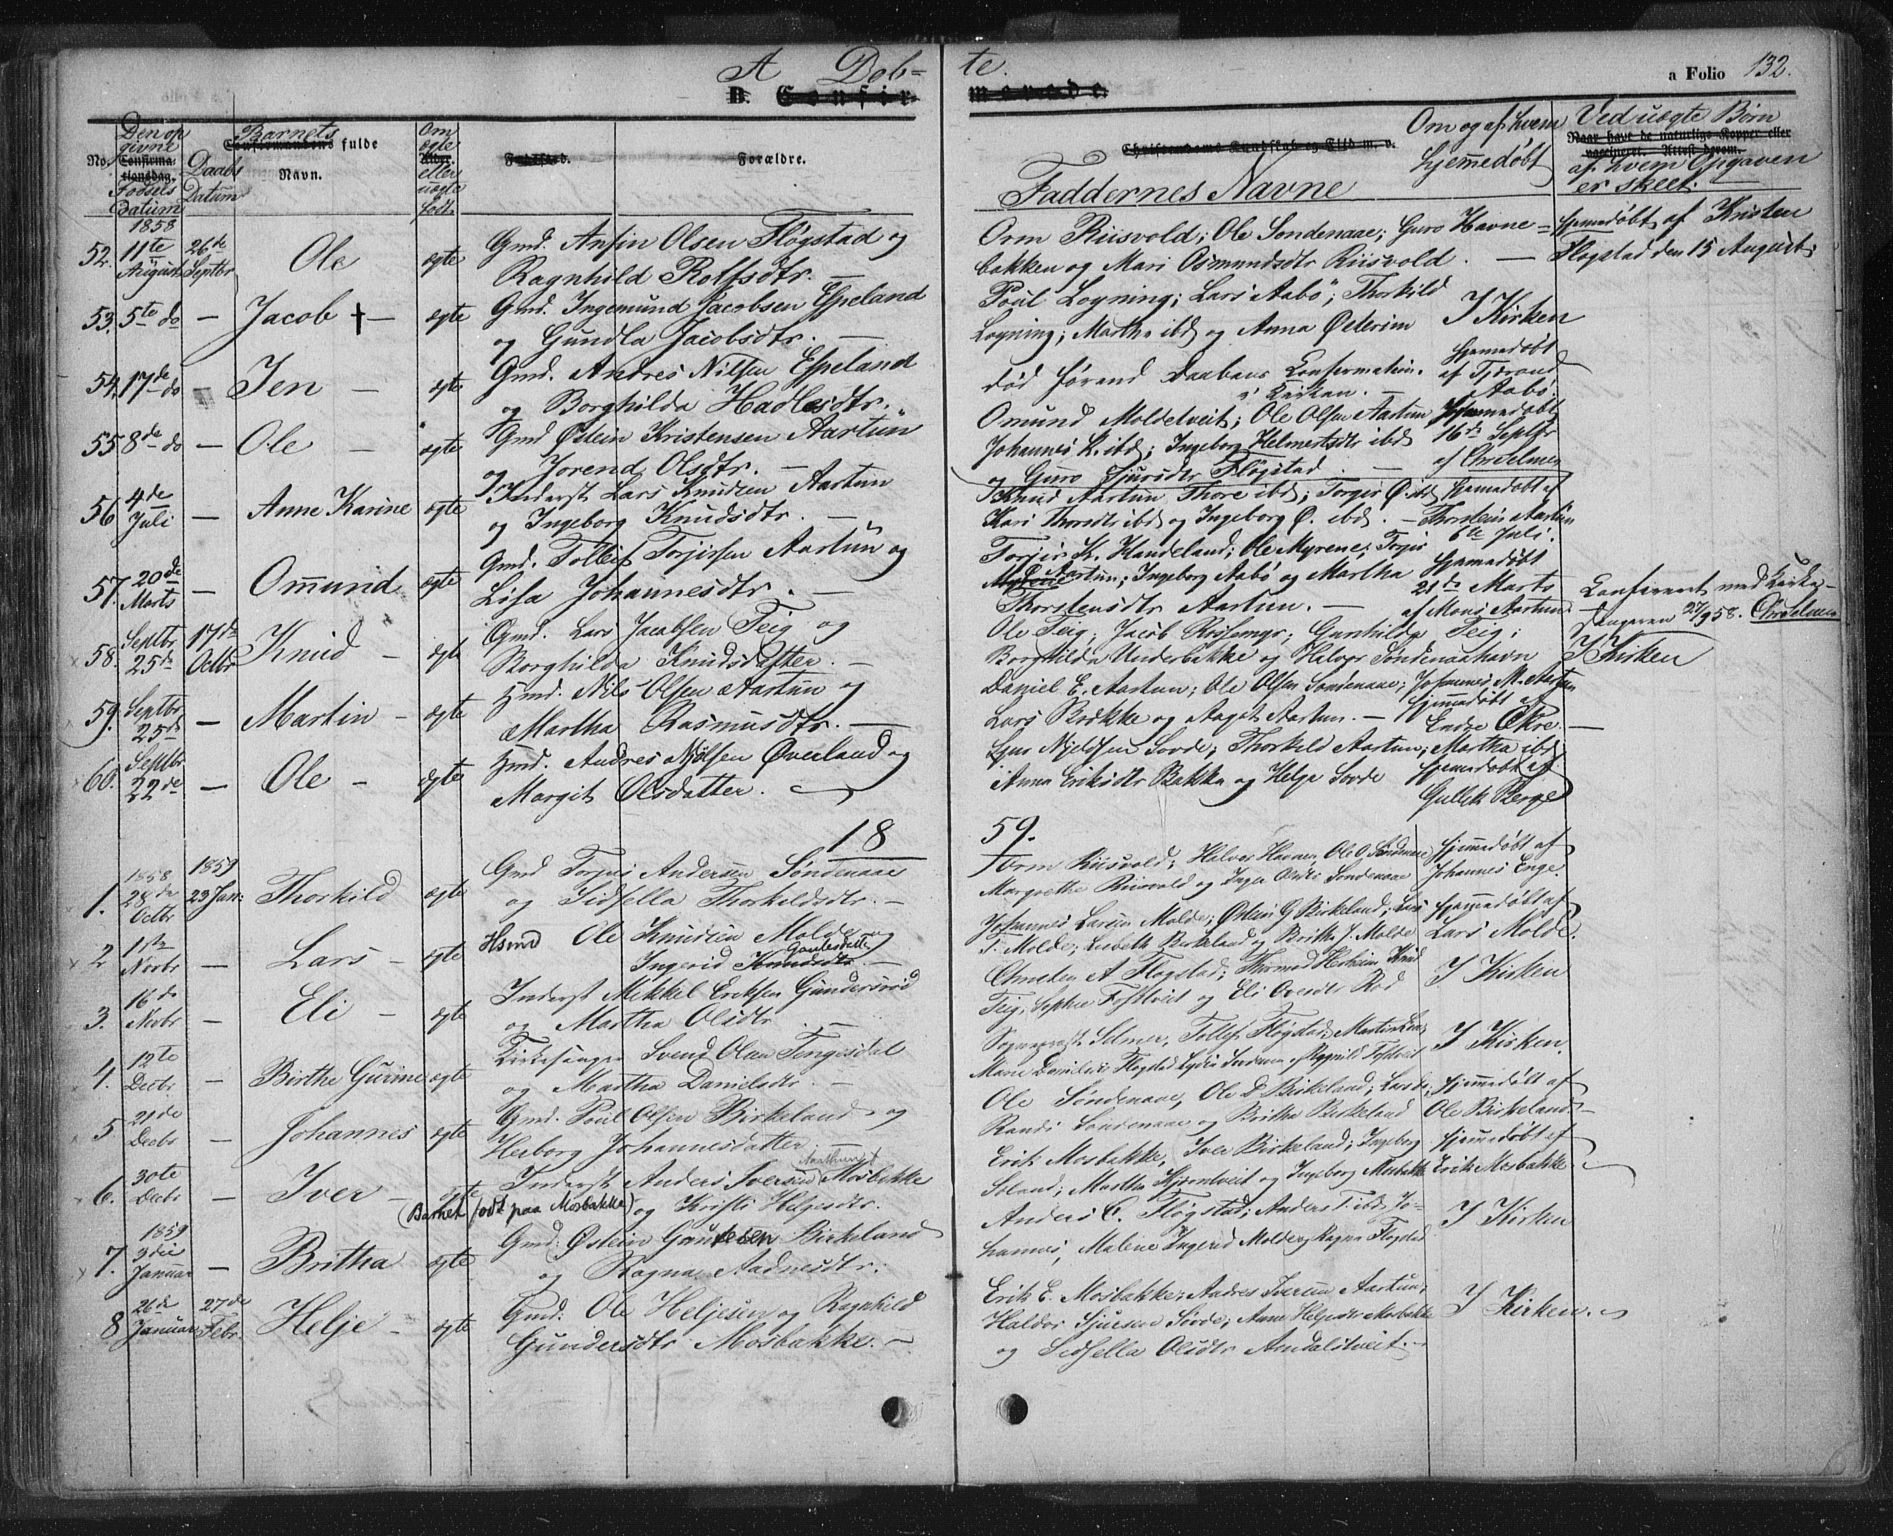 A Døb= te.
B. Confir- merede.
a Folio 132.
No. Den op givne Confirma- tionsdag. Fødsels Datum Daabs Datum Barnets Confirmandens fulde Navn. Om ægte eller uægte født. Fødested. Forældre.
Faddernes Navne
Om og af hvem hjemmedøbt
Ved uægte Børn af hvem Opgaven er skeet.
1858
52. 11te August 26de Septbr Ole ægte Gmd. Anfin Olsen Fløgstad og
Ragnhild Rolfsdtr. —
Orm Riisvold; Ole Søndenaae; Guro Havne=
bakken og Mari Osmundsdtr Riisvold. —
hjemmedøbt af Kristen
Flogstad den 15 August.
53. 5te do — Jacob † — ægte Gmd. Ingemund Jacobsen Espeland
og Gundla Jacobsdtr. —
Poul Løgning; Lars Aabø; Thorkild
Løgning; Martha ibd og Anna Østerim
I Kirken
54. 17de do Jen — ægte Gmd. Andres Nilsen Espeland
og Borghilda Hadlesdtr.
død førend Daabens Confirmation
i Kirken. —
hjemmedøbt
af Tjærand
Aabø.
55 8de do — Ole — ægte Gmd Østein Kristensen Aartun
og Jorend Olsdtr. —
Omund Moldetveit; Ole Olsen Aartun
Johannes K. ibd; Ingeborg Helmertsdtr ibd
og Guro Sjursdtr Fløgstad. —
hjemmedøbt
16de Septbr
56 4de Juli — Anne Karine ægte Inderst Lars Knudsen Aartun
og Ingeborg Knudsdtr. —
Knud Aartun Thore ibd; Torgir Ø. ibd
Kari Thorsdtr ibd og Ingeborg Ø. ibd. —
hjemmedøbt af
Thorstein Aartun
6te Juli.
57. 20de Marts — Omund ægte Gmd. Tollef Torjersen Aartun og
Lisa Johannesdtr. —
Torjer K. Handeland; Ole Myrene; Torjer
Aartun; Ingeborg Aabø og Martha
Thorstensdtr Aartun. —
hjemmedøbt
21de Marts
af Mons Aartun
Confereret med Kirke-
sangeren 27/9 58.
58. Septbr 25de 17de Octbr Knud — ægte Gmd. Lars Jacobsen Teig og
Borghilda Knudsdatter. —
Ole Teig; Jacob Risemyr; Gunhilda Teig;
Borghilda Underbakke og Halvor Søndenaahavn
I Kirken
59. Septbr 25de — Martin — ægte Hmd. Nils Olsen Aartun og
Martha Rasmusdtr. —
Daniel E. Aartun; Ole Olsen Søndenaae; Johannes M. Aartun
Lars Brekke og Aagot Aartun. —
hjemmedøbt af
Endre Økre.
60. Septbr 22de — Ole — ægte Hmd. Andres Njølsen Øverland og
Margit Olsdatter.
Sjur Njeldsen Sovde; Thorkild Aartun; Martha ibd
Anna Eriksdtr Bakka og Helga Sovde
hjemmedøbt af
Gullek Berge
18 59.
1. 1858 28de Octbr 1859 23 Jan: Thorkild ægte Gmd Torjus Andersen Søndenaae
og Sidsella Thorkildsdtr. —
Orm Riisvold; Halvor Havnen, Ole O. Søndenaae
Margrethe Riisvold og Inger Olsdtr Søndenaae
hjemmedøbt af
Johannes Enge.
2 1ste Novbr — Lars — ægte Hsmd Ole Knudsen Molde og
Ingerid Knudsdtr Gautesdatter —
Johannes Larsen Molde; Østein G Birkeland; Lars
T. Molde; Lisbeth Birkeland og Britha J. Molde
hjemmedøbt af
Lars Molde.
3. 16de Novbr — Eli — ægte Inderst Mikkel Eriksen Gundersrød
og Martha Olsdtr. —
A Flogstad; Thormod Herheim Knud
Teig; Sophie Tostveit og Eli Rød
I Kirken
4. 12te Decbr — Birthe Gurine ægte Kirkesanger Svend Olsen Tengesdal
og Martha Danielsdtr. —
Sogneprest Selmer, Tollef Fløgstad;
Marie Danielsdtr Flogstad
I Kirken.
5 21de Decbr — Johannes ægte Gmd. Poul Olsen Birkeland og
Herborg Johannesdatter. —
Ole Søndenaae, Ole D Birkeland; Lars do;
Randi Søndenaae og Britha Birkeland
hjemmedøbt af
Ole Birkeland
6. 30te Decbr — Iver — ægte Inderst Anders Iversen Mosbakke
(Barnet født paa Mosbakke) og Kristi Helgesdtr.
Erik Mosbakke, Iver Birkeland; Ingeborg
Søland; Martha Hjorteveit og Ingeborg Mosbakke
hjemmedøbt af
Erik Mosbakke.
7. 1859 3die Januar — Britha ægte Gmd. Østein Gautesen Birkeland
og Ragna Aadnesdtr.
Anders C. Fløgstad; Anders T. ibd; Jo-
hannes, Malene Ingerid Molde og Ragna Flogstad
I Kirken
8 26de Januar 27de Febr. Helje — ægte Gmd. Ole Heljesen og Ragnhild
Gundersdtr Mosbakke. —
Erik E. Mosbakke; Andres Iversen Aartun;
Haldor Sjursen Sovde; Anne Helgesdtr Mosbakke
og Sidsella Olsdtr Amdalstveit. —
I Kirken.